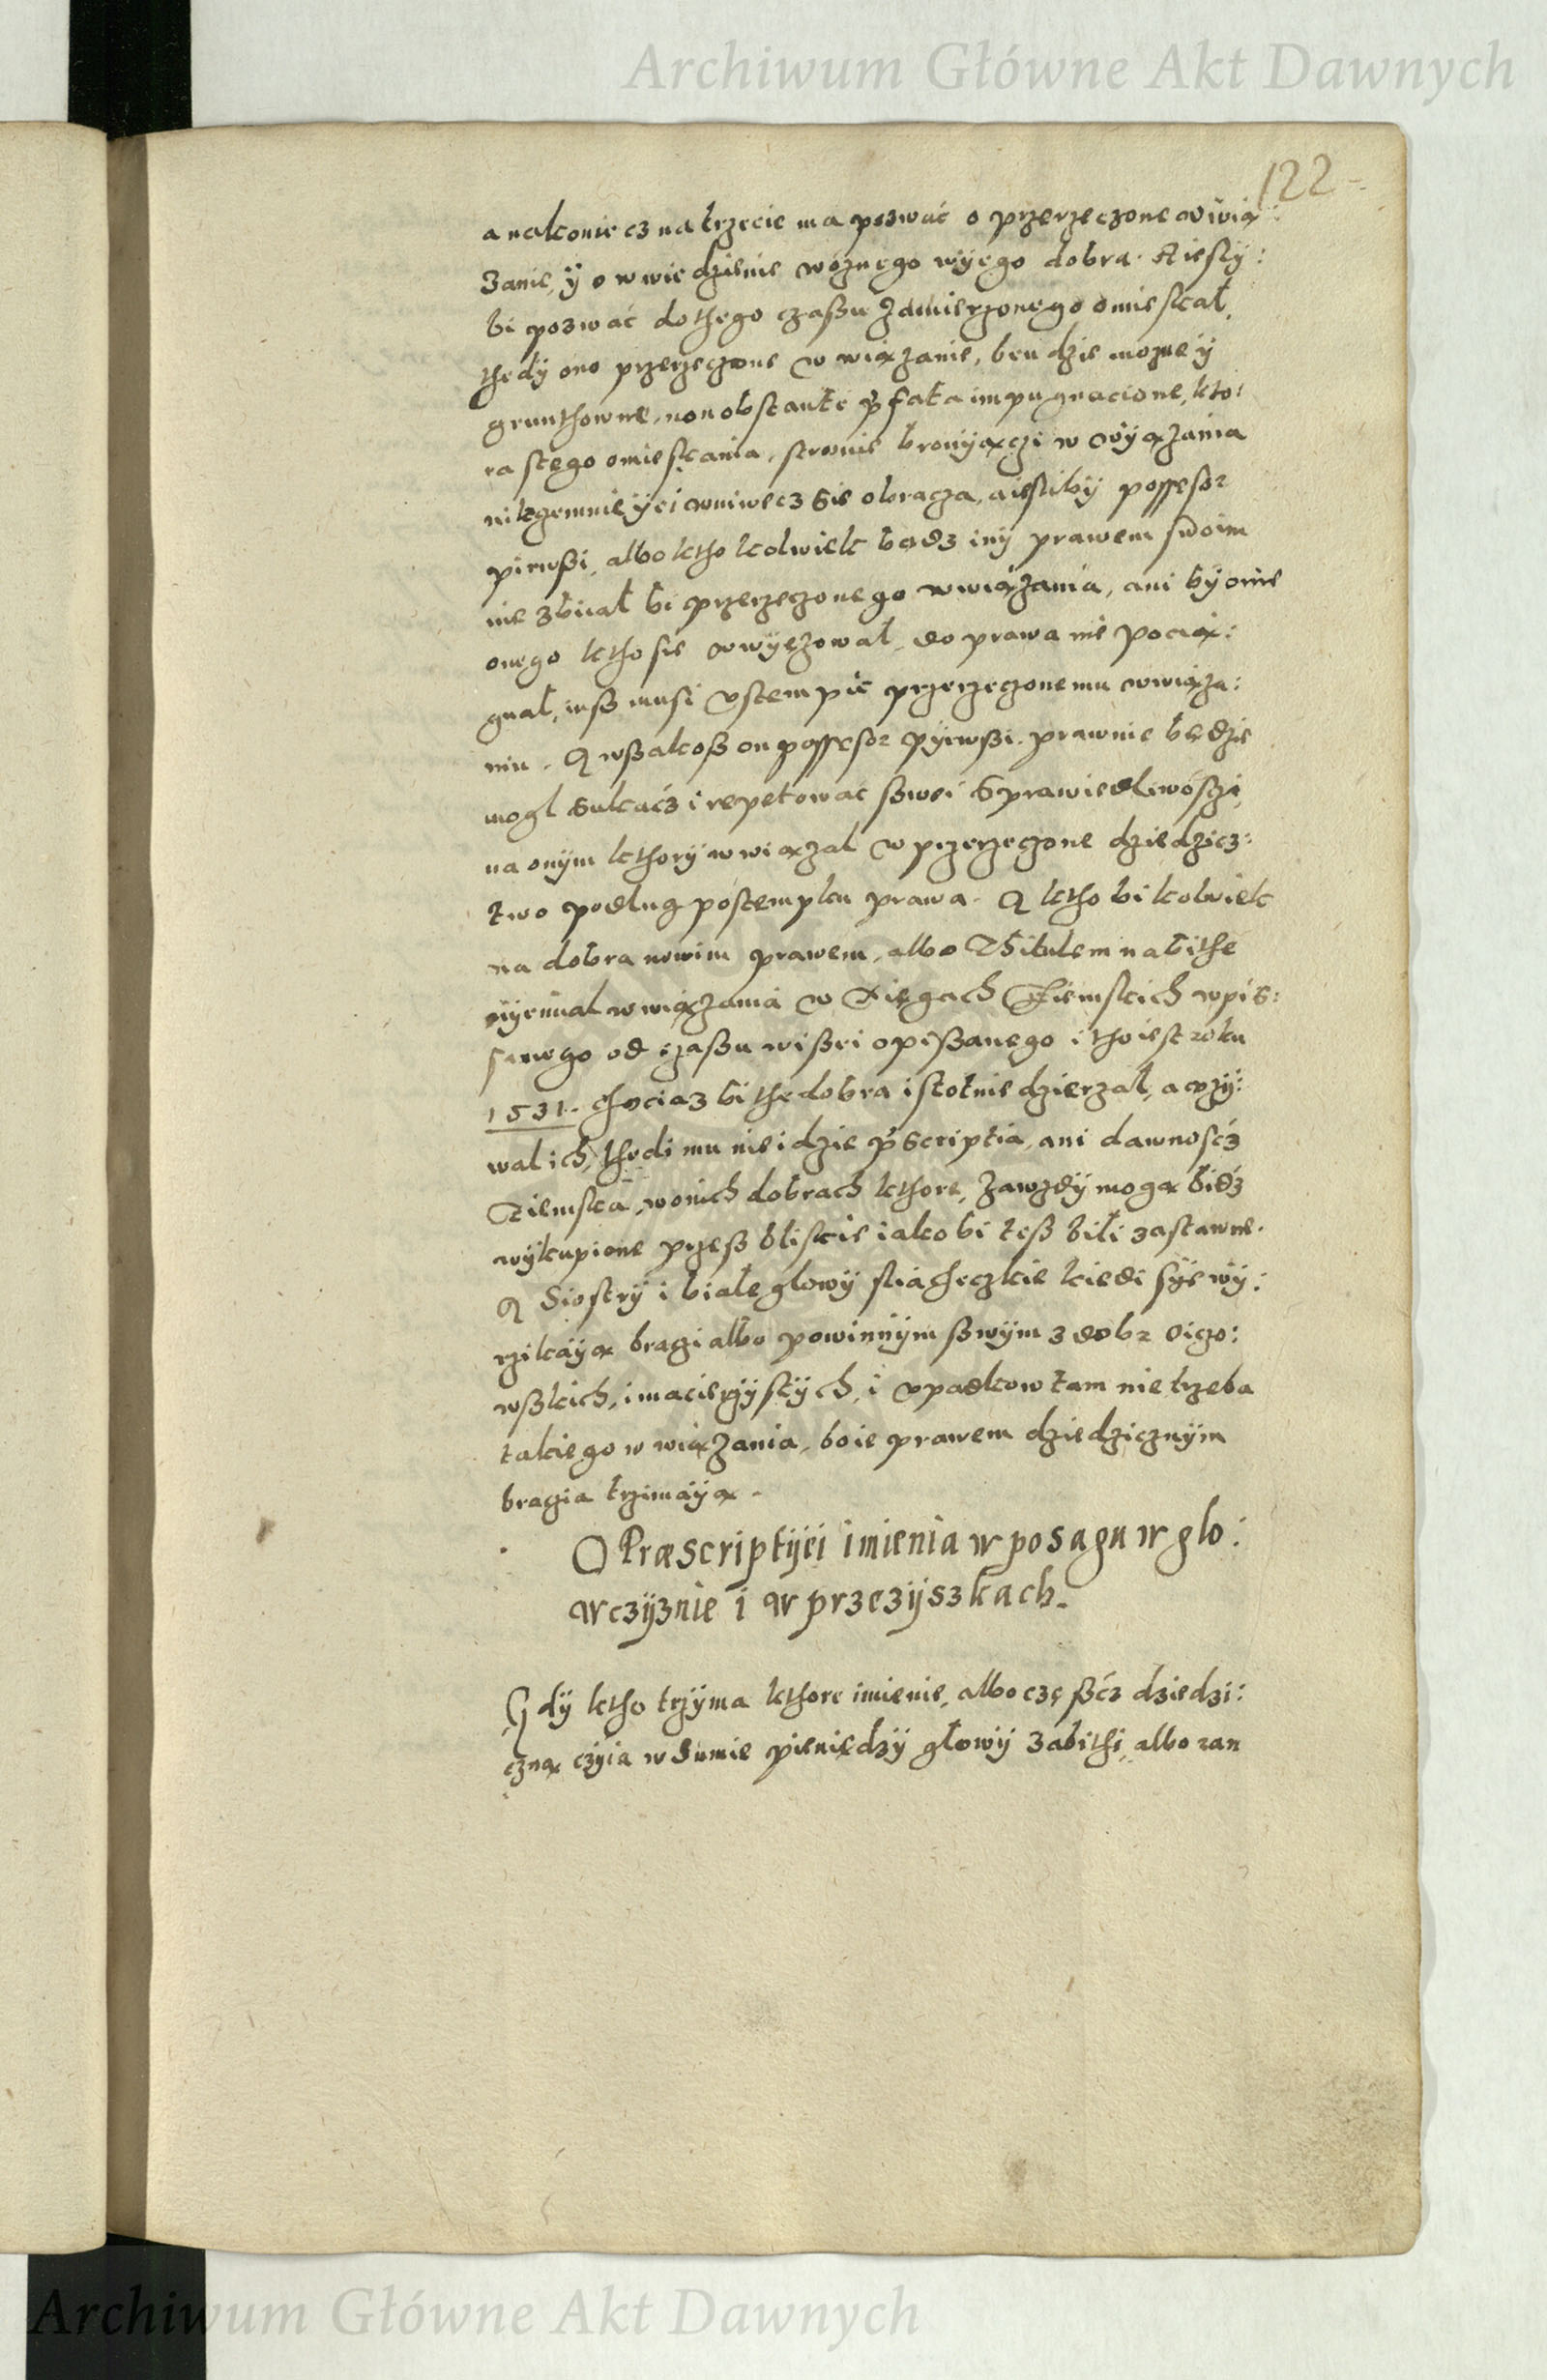 Archiwum Główne Akt Dawnych
122
a nakoniecz na trzecie ma pozwać o przerzeczone wwiąx:
zanie, ÿ o wwiedzienie woznego wÿego dobra. A iesly:
bi pozwać do thego czaßu zamierzonego omieskał,
thedÿ ono przerzeczone wwiąxzanie, bendzie mozne ÿ
grunthowne, non obstante p̄fata impugnacione, kto:
ra stego omieskania, stronie broniÿaxczi wwÿaxzania
nikczemnieÿ i wniwecz sie obracza, a iesliby possesor
pirwßi, albo ktho kolwiek bądz inÿ prawem swoim
nie zbiiał bi przerzeczonego wwiąxzania, ani bÿ onie
onego ktho sie wwÿęzował, do prawa nie pociax:
gnał, iuß musi vstempić przerzeczonemu wwiąza:
niu. A wßakoß on possesor pÿrwßi, prawnie będzie
mogł sukacz i repetować swei sprawiedliwosczi,
na onÿm kthorÿ wwiaxzal w przerzeczone dziedzicz:
two podlug postempku prawa. A ktho bi kolwiek
na dobra nowim prawem, albo Thitulem nabithe
nÿemial wwiąxzania w Xięgach Ziemskich wpis:
sanego od czaßu wißei opißanego i tho iest roku
1531. chociaz bi the dobra istotnie dzierzał, a vzÿ:
wal ich, thedi mu nie idzie p̄scriptia, ani dawnoścz
Ziemska, w onich dobrach kthore, zawzdÿ mogax bidz
wÿkupione przeß bliskie iako bi teß bili zastawne.
A Siostrÿ i białe glowÿ sliacheczkie kiedi sÿe wÿ:
rzikaÿax braczi albo powinnÿm swÿm z dobr oiczo:
wßkich, i macierzÿstÿch, i vpadkow tam nie trzeba
takiego wwiąxzania, bo ie prawem dziedzicznÿm
braczia trzimaÿax.
O Præscriptÿei imienia w posagu w glo:
wczÿznie i w przezÿszkach.
Gdÿ ktho trzÿma kthore imienie, albo częßcz dziedzi:
cznax czÿia w Sumie pieniędzÿ głowÿ zabithi, albo ran
Archiwum Główne Akt Dawnych